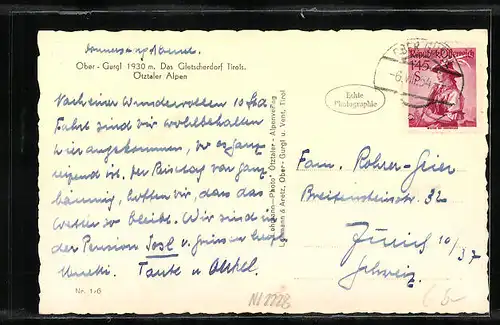 Sonnenaufgang
Ober - Gurgl 1930 m. Das Gletscherdorf Tirols.
Ötztaler Alpen
Nach einer Wundervollen 10 Std
Fahrt sind wir wohlbehalten
hier angekommen, wo es ganz
reizend ist. der war ganz
hoffen wir, dass das
Wetter so bleibt. Wir sind in
der Pension Josl u. grüssen
Tante u. Onkel.
Nr. 1/6
Lohmann-Photo Ötztaler - Alpenverlag
Lohmann & Aretz, Ober - Gurgl u. Vent, Tirol
Echte
Photographie
OBER
-6.VII.54
Republik Österreich
1.45
S
Fam. Rohrer-Geier
Breitensteinstr. 32
Zürich 10/37
Schweiz